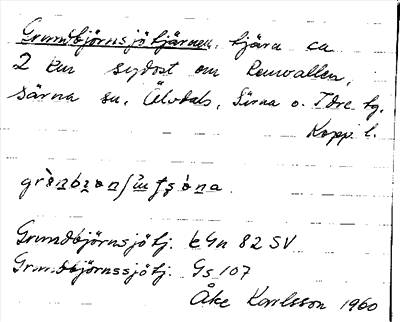 Grundbjörnsjötjärnen, tjärn ca
2 km sydost om Renvallen,
Särna sn, Älvdals, Särna o. Idre tg.
Kopp. l.
Grundbjörnsjötj. kGn 82 SV
Grundbjörnssjötj. Gs 107
Åke Karlsson 1960